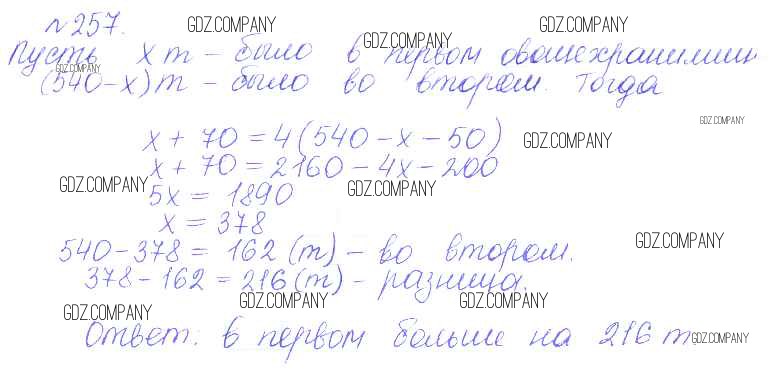 №257. GDZ.COMPANY GDZ.COMPANY
Пусть x т – было в первом овощехранилищ GDZ.COMPANY
GDZ.COMPANY
(540-x)т – было во втором. Тогда
GDZ.COMPANY
x + 70 = 4(540 - x - 50) GDZ.COMPANY
x + 70 = 2160 - 4x - 200
GDZ.COMPANY 5x = 1890 GDZ.COMPANY
x = 378
540 - 378 = 162 (т) – во втором. GDZ.COMPANY
378 - 162 = 216 (т) – разница.
GDZ.COMPANY GDZ.COMPANY GDZ.COMPANY
Ответ: в первом больше на 216 т. GDZ.COMPANY